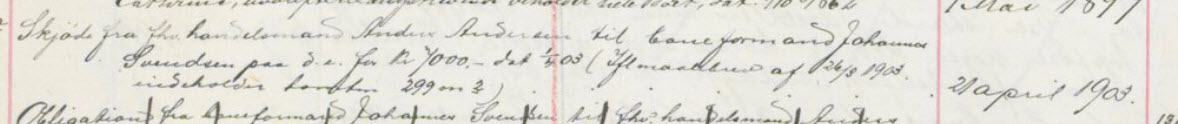 Cathrine, beholder hele Boet, dat. 7/10 1862
1 Mai 1897
Skjöde fra fhv. handelsmand Anders Andersen til baneformand Johannes
Svendsen paa d. e. for Kr 7000,- dat 1/4 03 (Iflg maalebrev af 26/3 1903.
indeholder tomten 299 m2)
21 april 1903.
Obligation fra baneformand Johannes Svendsen til fhv. handelsmand Anders